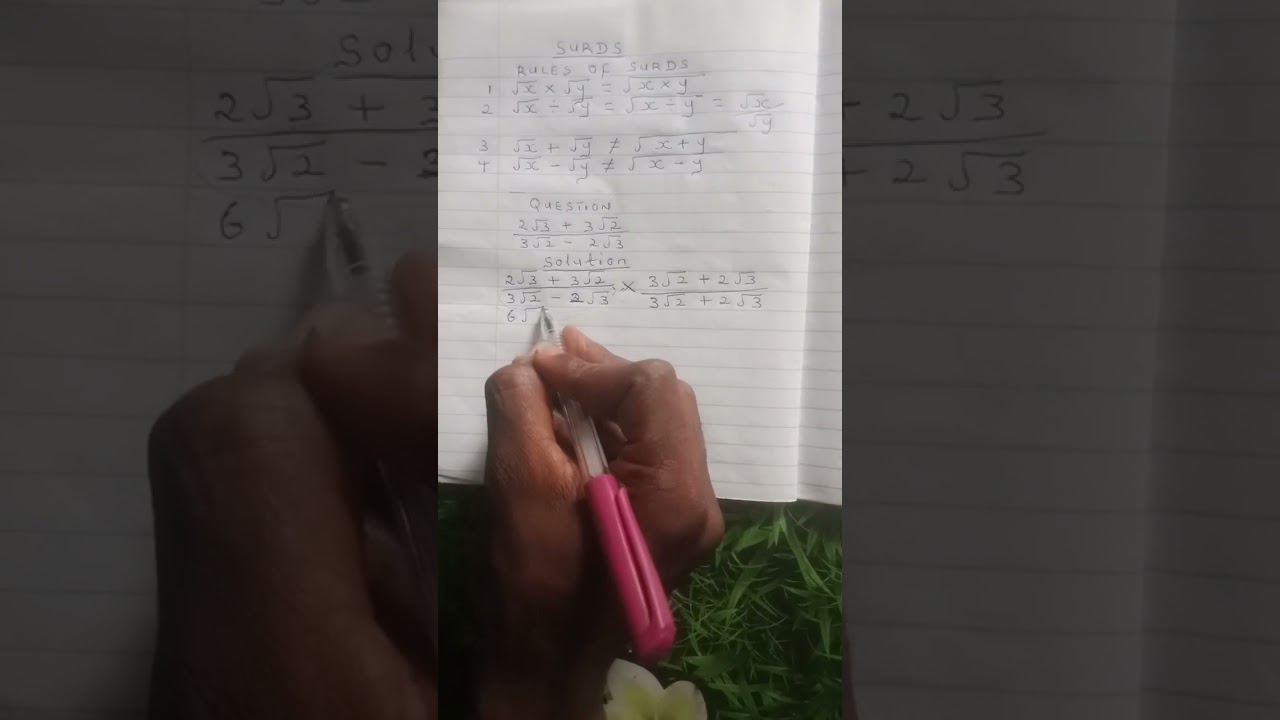 SURDS
RULES OF SURDS
1 √x × √y = √x × y
2 √x ÷ √y = √x ÷ y = √x/√y
3 √x + √y ≠ √x + y
4 √x − √y ≠ √x − y
QUESTION
2√3 + 3√2
3√2 − 2√3
Solution
2√3 + 3√2 × 3√2 + 2√3
3√2 − 2√3 3√2 + 2√3
6√